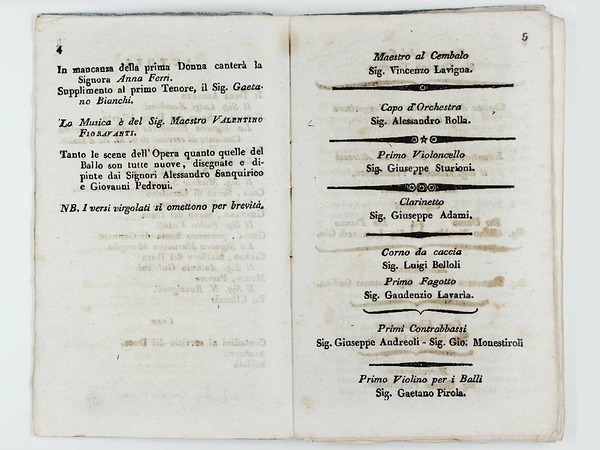 4
In mancanza della prima Donna canterà la
Signora Anna Ferri.
Supplimento al primo Tenore, il Sig. Gaeta-
no Bianchi.
La Musica è del Sig. Maestro VALENTINO
FIORAVANTI.
Tanto le scene dell' Opera quanto quelle del
Ballo son tutte nuove, disegnate e di-
pinte dai Signori Alessandro Sanquirico
e Giovanni Pedroni.
NB. I versi virgolati si omettono per brevità.
5
Maestro al Cembalo
Sig. Vincenzo Lavigna.
Capo d'Orchestra
Sig. Alessandro Rolla.
Primo Violoncello
Sig. Giuseppe Sturioni.
Clarinetto
Sig. Giuseppe Adami.
Corno da caccia
Sig. Luigi Belloli
Primo Fagotto
Sig. Gaudenzio Lavaria.
Primi Contrabbassi
Sig. Giuseppe Andreoli - Sig. Gio. Monestiroli
Primo Violino per i Balli
Sig. Gaetano Pirola.